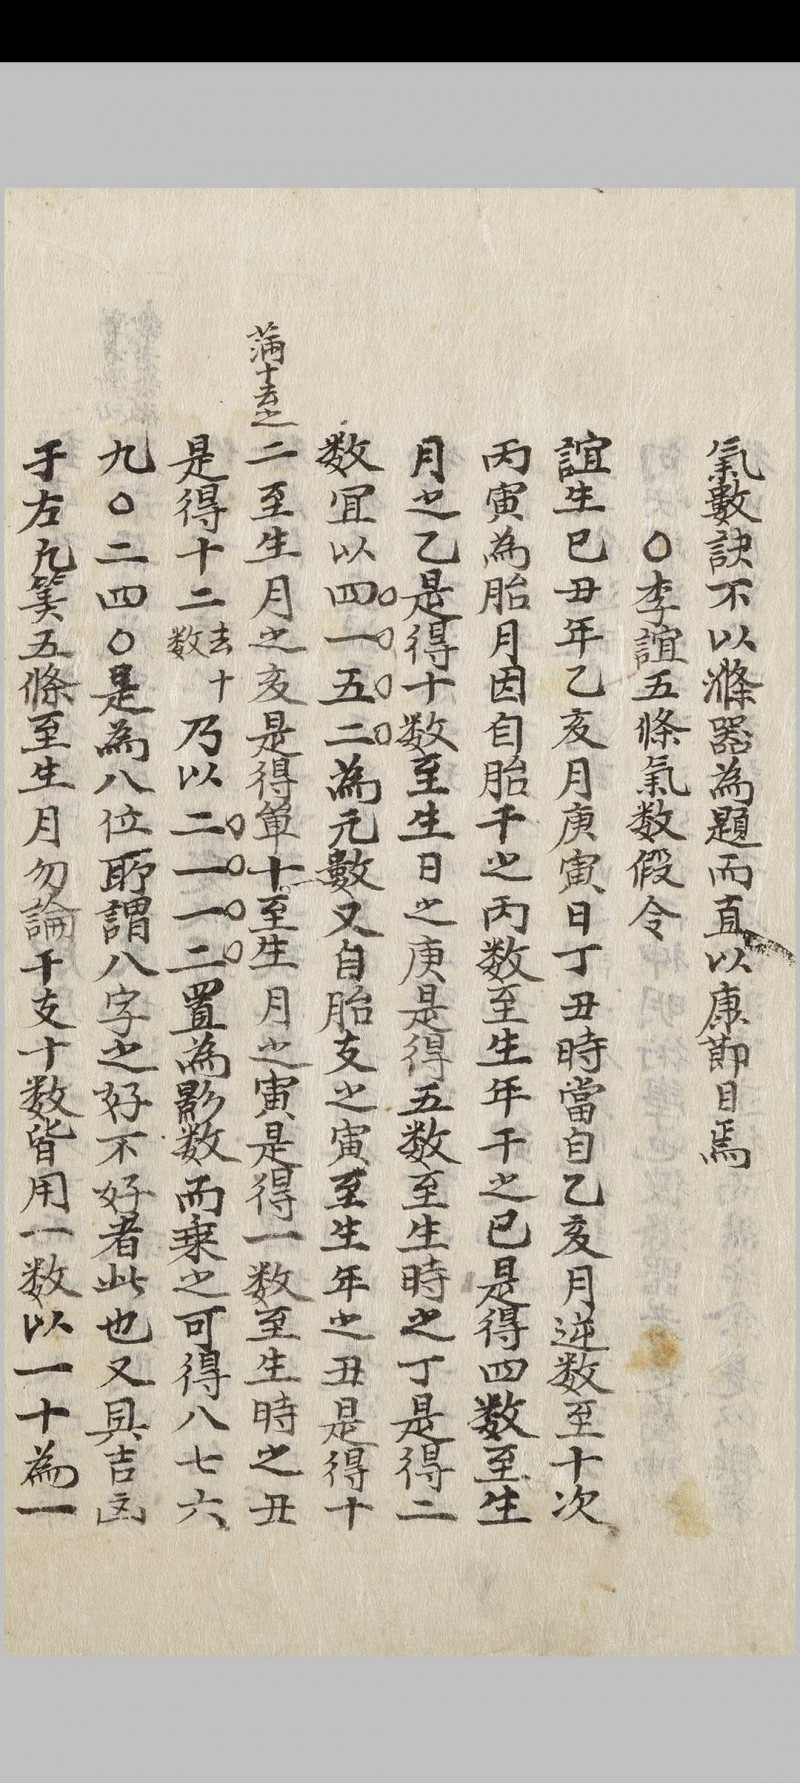 氣數訣不以滌器為題而直以康節目焉
○李誼五條氣数假令
誼生巳丑年乙亥月庚寅日丁丑時當自乙亥月逆数至十次
丙寅為胎月因自胎干之丙数至生年干之巳是得四数至生
月之乙是得十数至生日之庚是得五数至生時之丁是得二
数宜以四一五二為元數又自胎支之寅至生年之丑是得十
蒲十去之
二至生月之亥是得单十至生月之寅是得一数至生時之丑
是得十二去十数乃以二一一二置為影数而乗之可得八七六
九○二四○是為八位所謂八字之好不好者此也又具吉凶
于左凡筭五條至生月勿論干支十数皆用一数以一十為一